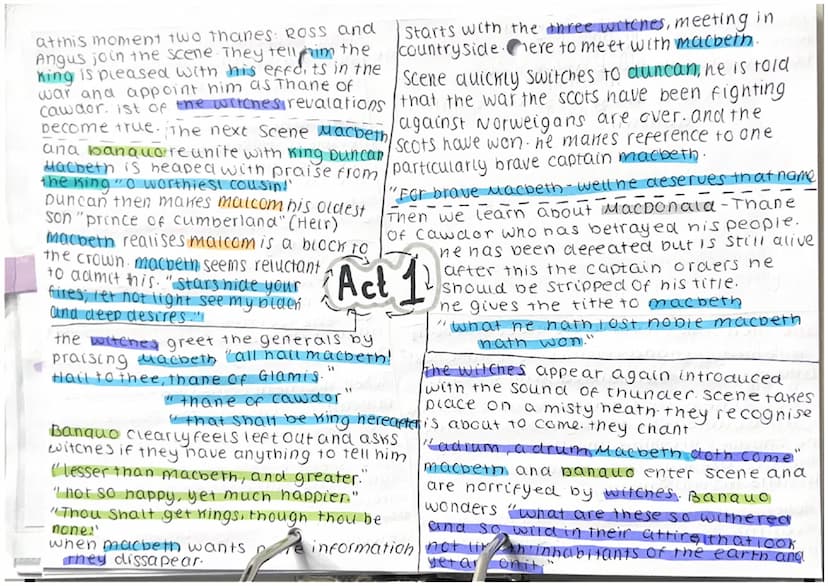 Act 1
Starts with the three witches, meeting in
countryside. here to meet with macbeth.
Scene quickly switches to duncan, he is told
that the war the scots have been fighting
against Norweigans are over. and the
scots have won. he makes reference to one
particularly brave captain macbeth.
"For brave Macbeth - well he deserves that name
Then we learn about MacDonald - Thane
of Cawdor who has betrayed his people.
he has been defeated but is still alive
after this the captain orders he
should be stripped of his title.
he gives the title to macbeth
"what he hath lost noble macbeth
hath won."
The witches appear again introduced
with the sound of thunder. scene takes
place on a misty heath. they recognise
is about to come. they chant
"a drum, a drum, Macbeth doth come"
macbeth and banquo enter scene and
are horrifyed by witches. Banquo
wonders "what are these so withered
and so wild in their attire, that look
not inhabitants of the earth and
yet are on it."
the witches greet the generals by
praising Macbeth "all hail macbeth!
Hail to thee, thane of Glamis."
"thane of cawdor"
"that shall be King hereafter
Banquo clearly feels left out and asks
witches if they have anything to tell him
"lesser than macbeth, and greater."
"not so happy, yet much happier."
"Thou shalt get kings, though thou be
none!"
when macbeth wants information
they dissapear.
at this moment two thanes: Ross and
Angus join the scene. They tell him the
King is pleased with his efforts in the
war and appoint him as Thane of
cawdor. 1st of the witches revalations
become true. The next scene Macbeth
and banquo reunite with King Duncan
Macbeth is heaped with praise from
the King "O worthiest cousin!"
Duncan then makes malcom his oldest
son "prince of cumberland" (Heir)
Macbeth realises malcom is a block to
the crown. macbeth seems reluctant
to admit this. "stars hide your
fires, let not light see my black
and deep desires."